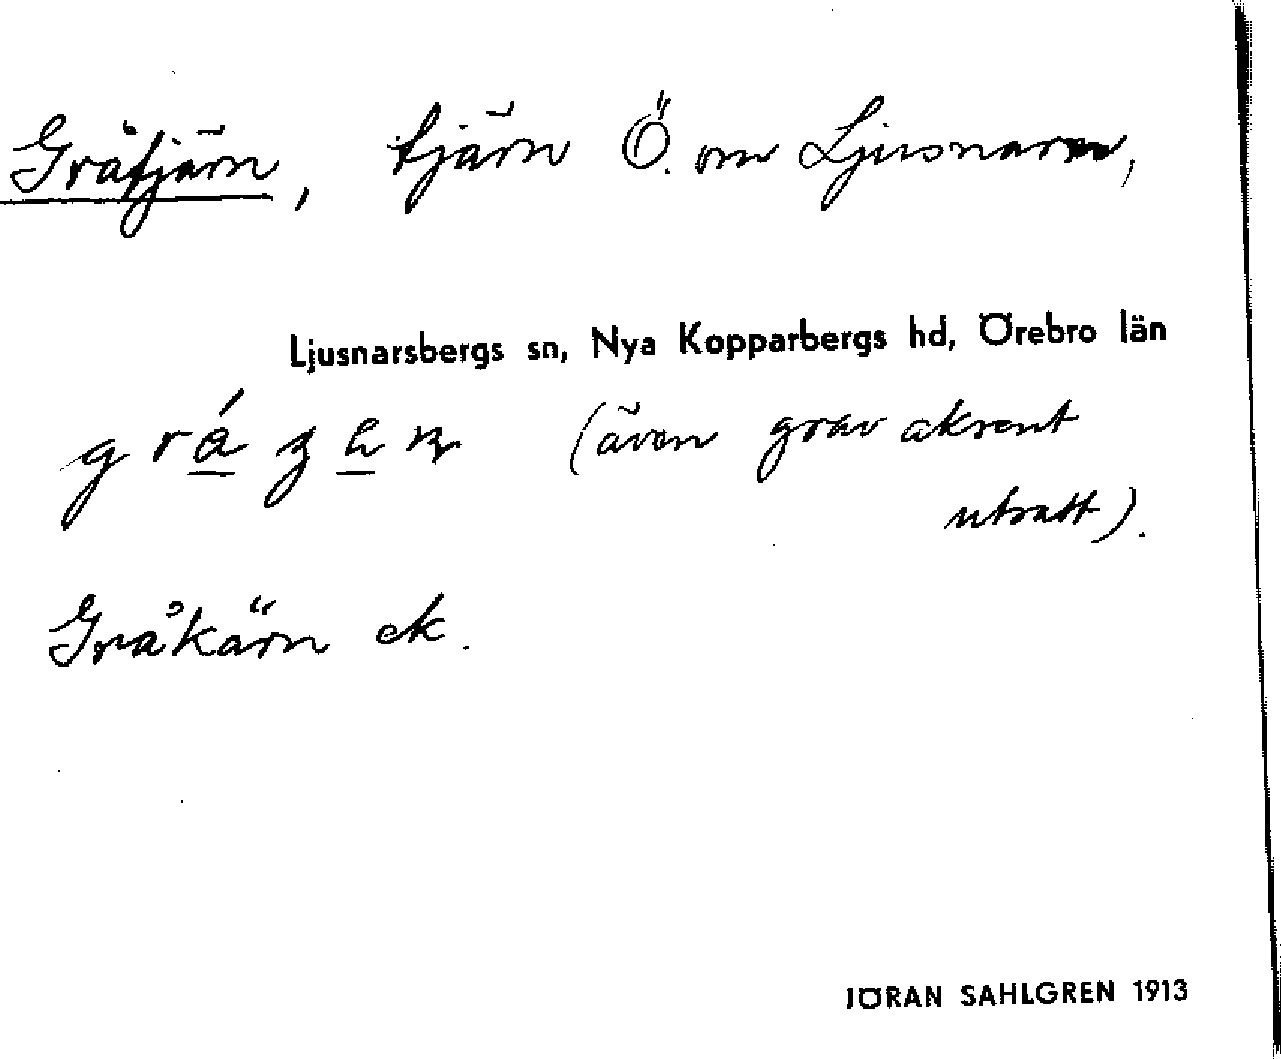 Gråtjärn, tjärn Ö. om Ljusnaren,
Ljusnarsbergs sn, Nya Kopparbergs hd, Örebro län
(även grav aksent
uttalatt).
Gråkärn ek.
JÖRAN SAHLGREN 1913